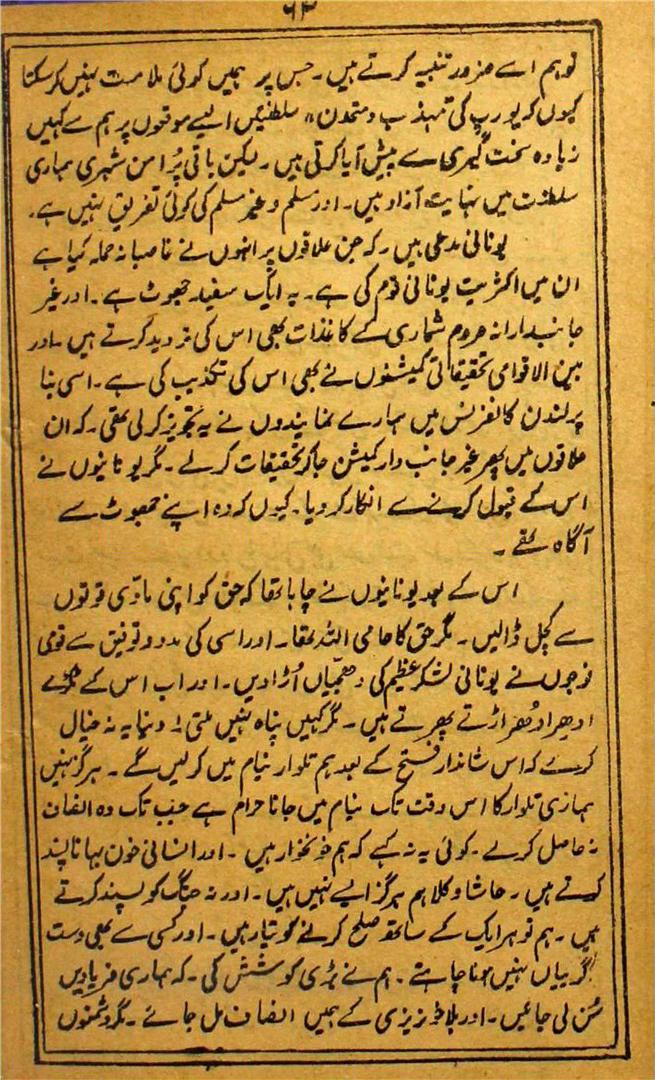 ۶۳
توہم اسے ضرور تنبیہ کرتے ہیں۔ جس پر ہمیں کوئی ملامت نہیں کرسکتا
کیوں کہ یورپ کی تہذب و متمدن" سلطنتیں ایسے موقعوں پر ہم سے کہیں
زیادہ سخت گیری سے پیش آیا کرتی ہیں۔ لیکن باقی پُرامن شہری ہماری
سلطنت میں نہایت آزاد ہیں۔ اور مسلم و غیر مسلم کی کوئی تفریق نہیں ہے۔
یونانی مدعی ہیں۔ کہ جن علاقوں پر انہوں نے غاصبانہ حملہ کیا ہے
ان میں اکثریت یونانی قوم کی ہے۔ یہ ایک سفید جھوٹ ہے۔ اور غیر
جانبدارانہ مردم شماری کے کاغذات بھی اس کی تردید کرتے ہیں۔ اور
بین الاقوامی تحقیقاتی کمیشنوں نے بھی اس کی تکذیب کی ہے۔ اسی بنا
پر لندن کانفرنس میں ہمارے نمایندوں نے یہ تجویز کرلی تھی۔ کہ ان
علاقوں میں پھر غیر جانب دار کمیشن جاکر تحقیقات کرلے۔ مگر یونانیوں نے
اس کے قبول کرنے سے انکار کردیا۔ کیوں کہ وہ اپنے جھوٹ سے
آگاہ تھے۔
اس کے بعد یونانیوں نے چاہا تھا کہ حق کو اپنی مادّی قوتوں
سے کچل ڈالیں۔ مگر حق کا حامی اللہ تھا۔ اور اسی کی مدد و توفیق سے قومی
فوجوں نے یونانی لشکر عظیم کی دھجیاں اُڑادیں۔ اور اب اس کے ٹکڑے
ادھر ادھر اڑتے پھرتے ہیں۔ مگر کہیں پناہ نہیں ملتی! دنیا یہ نہ خیال
کرے کہ اس شاندار فتح کے بعد ہم تلوار نیام میں کرلیں گے۔ ہرگز نہیں
ہماری تلوار کا اس وقت تک نیام میں جانا حرام ہے جب تک وہ انصاف
نہ حاصل کرے۔ کوئی یہ نہ کہے کہ ہم خونخوار ہیں۔ اور انسانی خون بہانا پسند
کرتے ہیں۔ حاشا و کلا ہم ہرگز ایسے نہیں ہیں۔ اور نہ جنگ کو پسند کرتے
ہیں۔ ہم تو ہر ایک کے ساتھ صلح کرنے کو تیار ہیں۔ اور کسی سے بھی دست
گریباں نہیں ہونا چاہتے۔ ہم نے بڑی کوشش کی۔ کہ ہماری فریادیں
سُن لی جائیں۔ اور بلا خونریزی کے ہمیں انصاف مل جائے۔ مگر دشمنوں